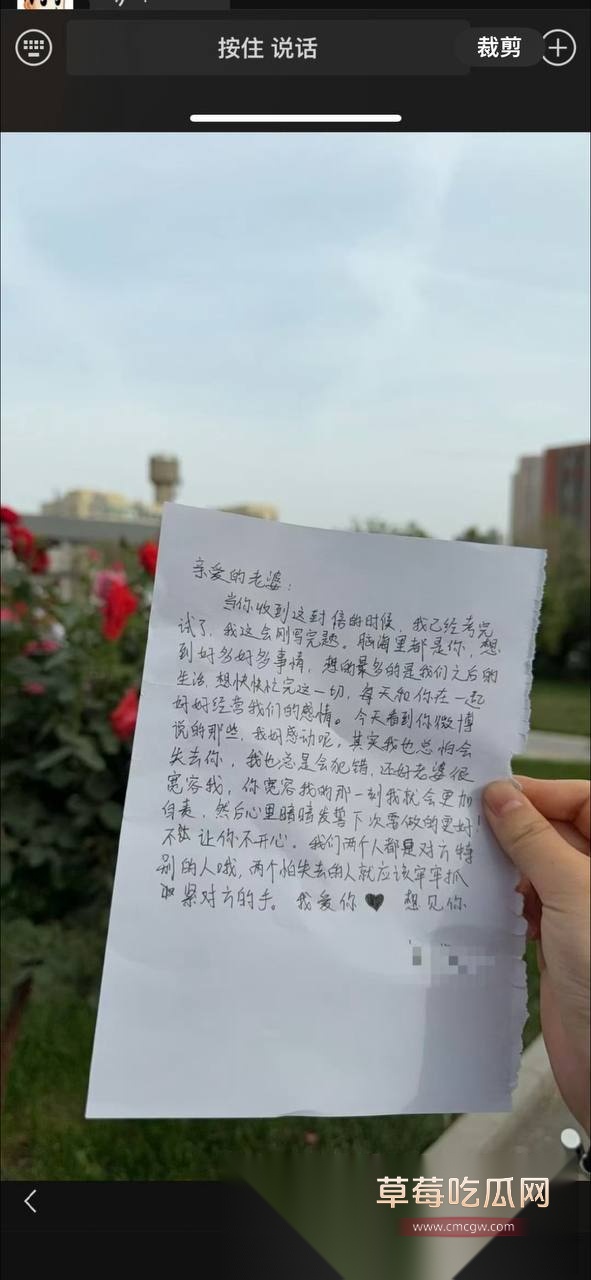 按住 说话
裁剪
亲爱的老婆：
当你收到这封信的时候，我已经考完
试了，我这会刚写完题。脑海里都是你，想
到好多好多事情，想的最多的是我们之后的
生活，想快快忙完这一切，每天和你在一起
好好经营我们的感情。今天看到你微博
说的那些，我好感动呢，其实我也总怕会
失去你，我也总是会犯错，还好老婆很
宽容我，你宽容我的那一刻我就会更加
自责，然后心里暗暗发誓下次要做的更好！
不让你不开心。我们两个人都是对方特
别的人哦，两个怕失去的人就应该牢牢抓
紧对方的手。我爱你♥ 想见你
草莓吃瓜网
www.cmcgw.com